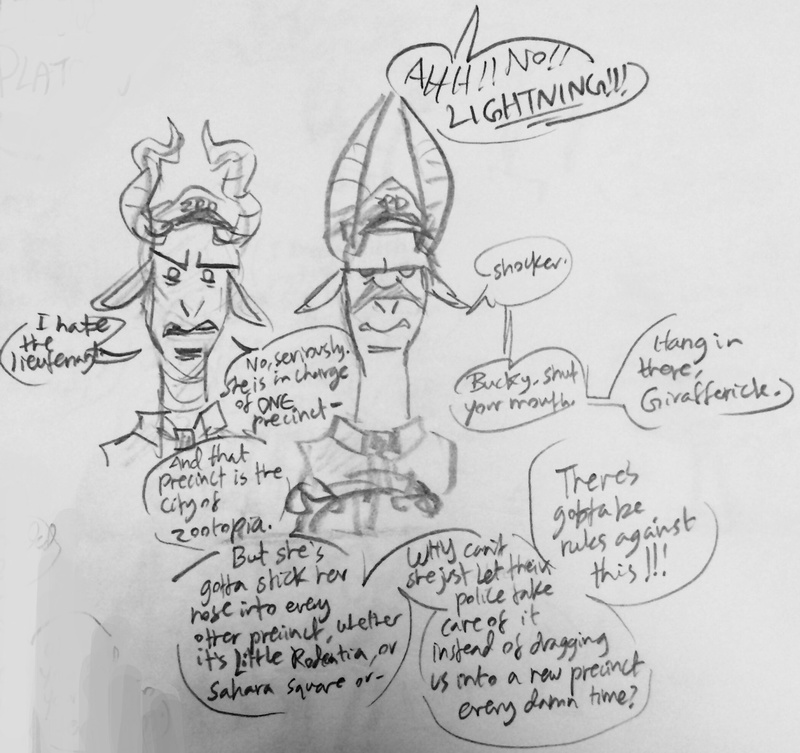 PLAT
AHH!! NO!!
LIGHTNING!!!
ZPD
ZPD
I hate
the
lieutenant.
shocker.
No, seriously.
She is in charge
of ONE
precinct-
Bucky, shut
your mouth.
Hang in
there,
Girafferick.
And that
precinct is the
city of
zootopia.
But she's
gotta stick her
nose into every
other precinct, whether
it's Little Rodentia, or
Sahara Square or-
Why can't
she just let their
police take
care of it
instead of dragging
us into a new precinct
every damn time?
There's
gotta be
rules against
this!!!